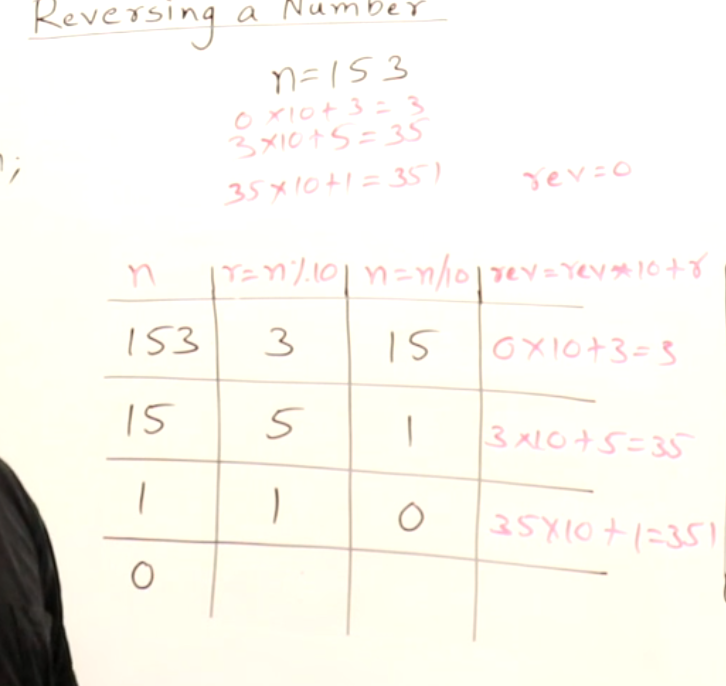 Reversing a Number
n=153
0×10+3=3
3×10+5=35
;
35×10+1=351 rev=0
n r=n%10 n=n/10 rev=rev*10+r
153 3 15 0×10+3=3
15 5 1 3×10+5=35
1 1 0 35×10+1=351
0